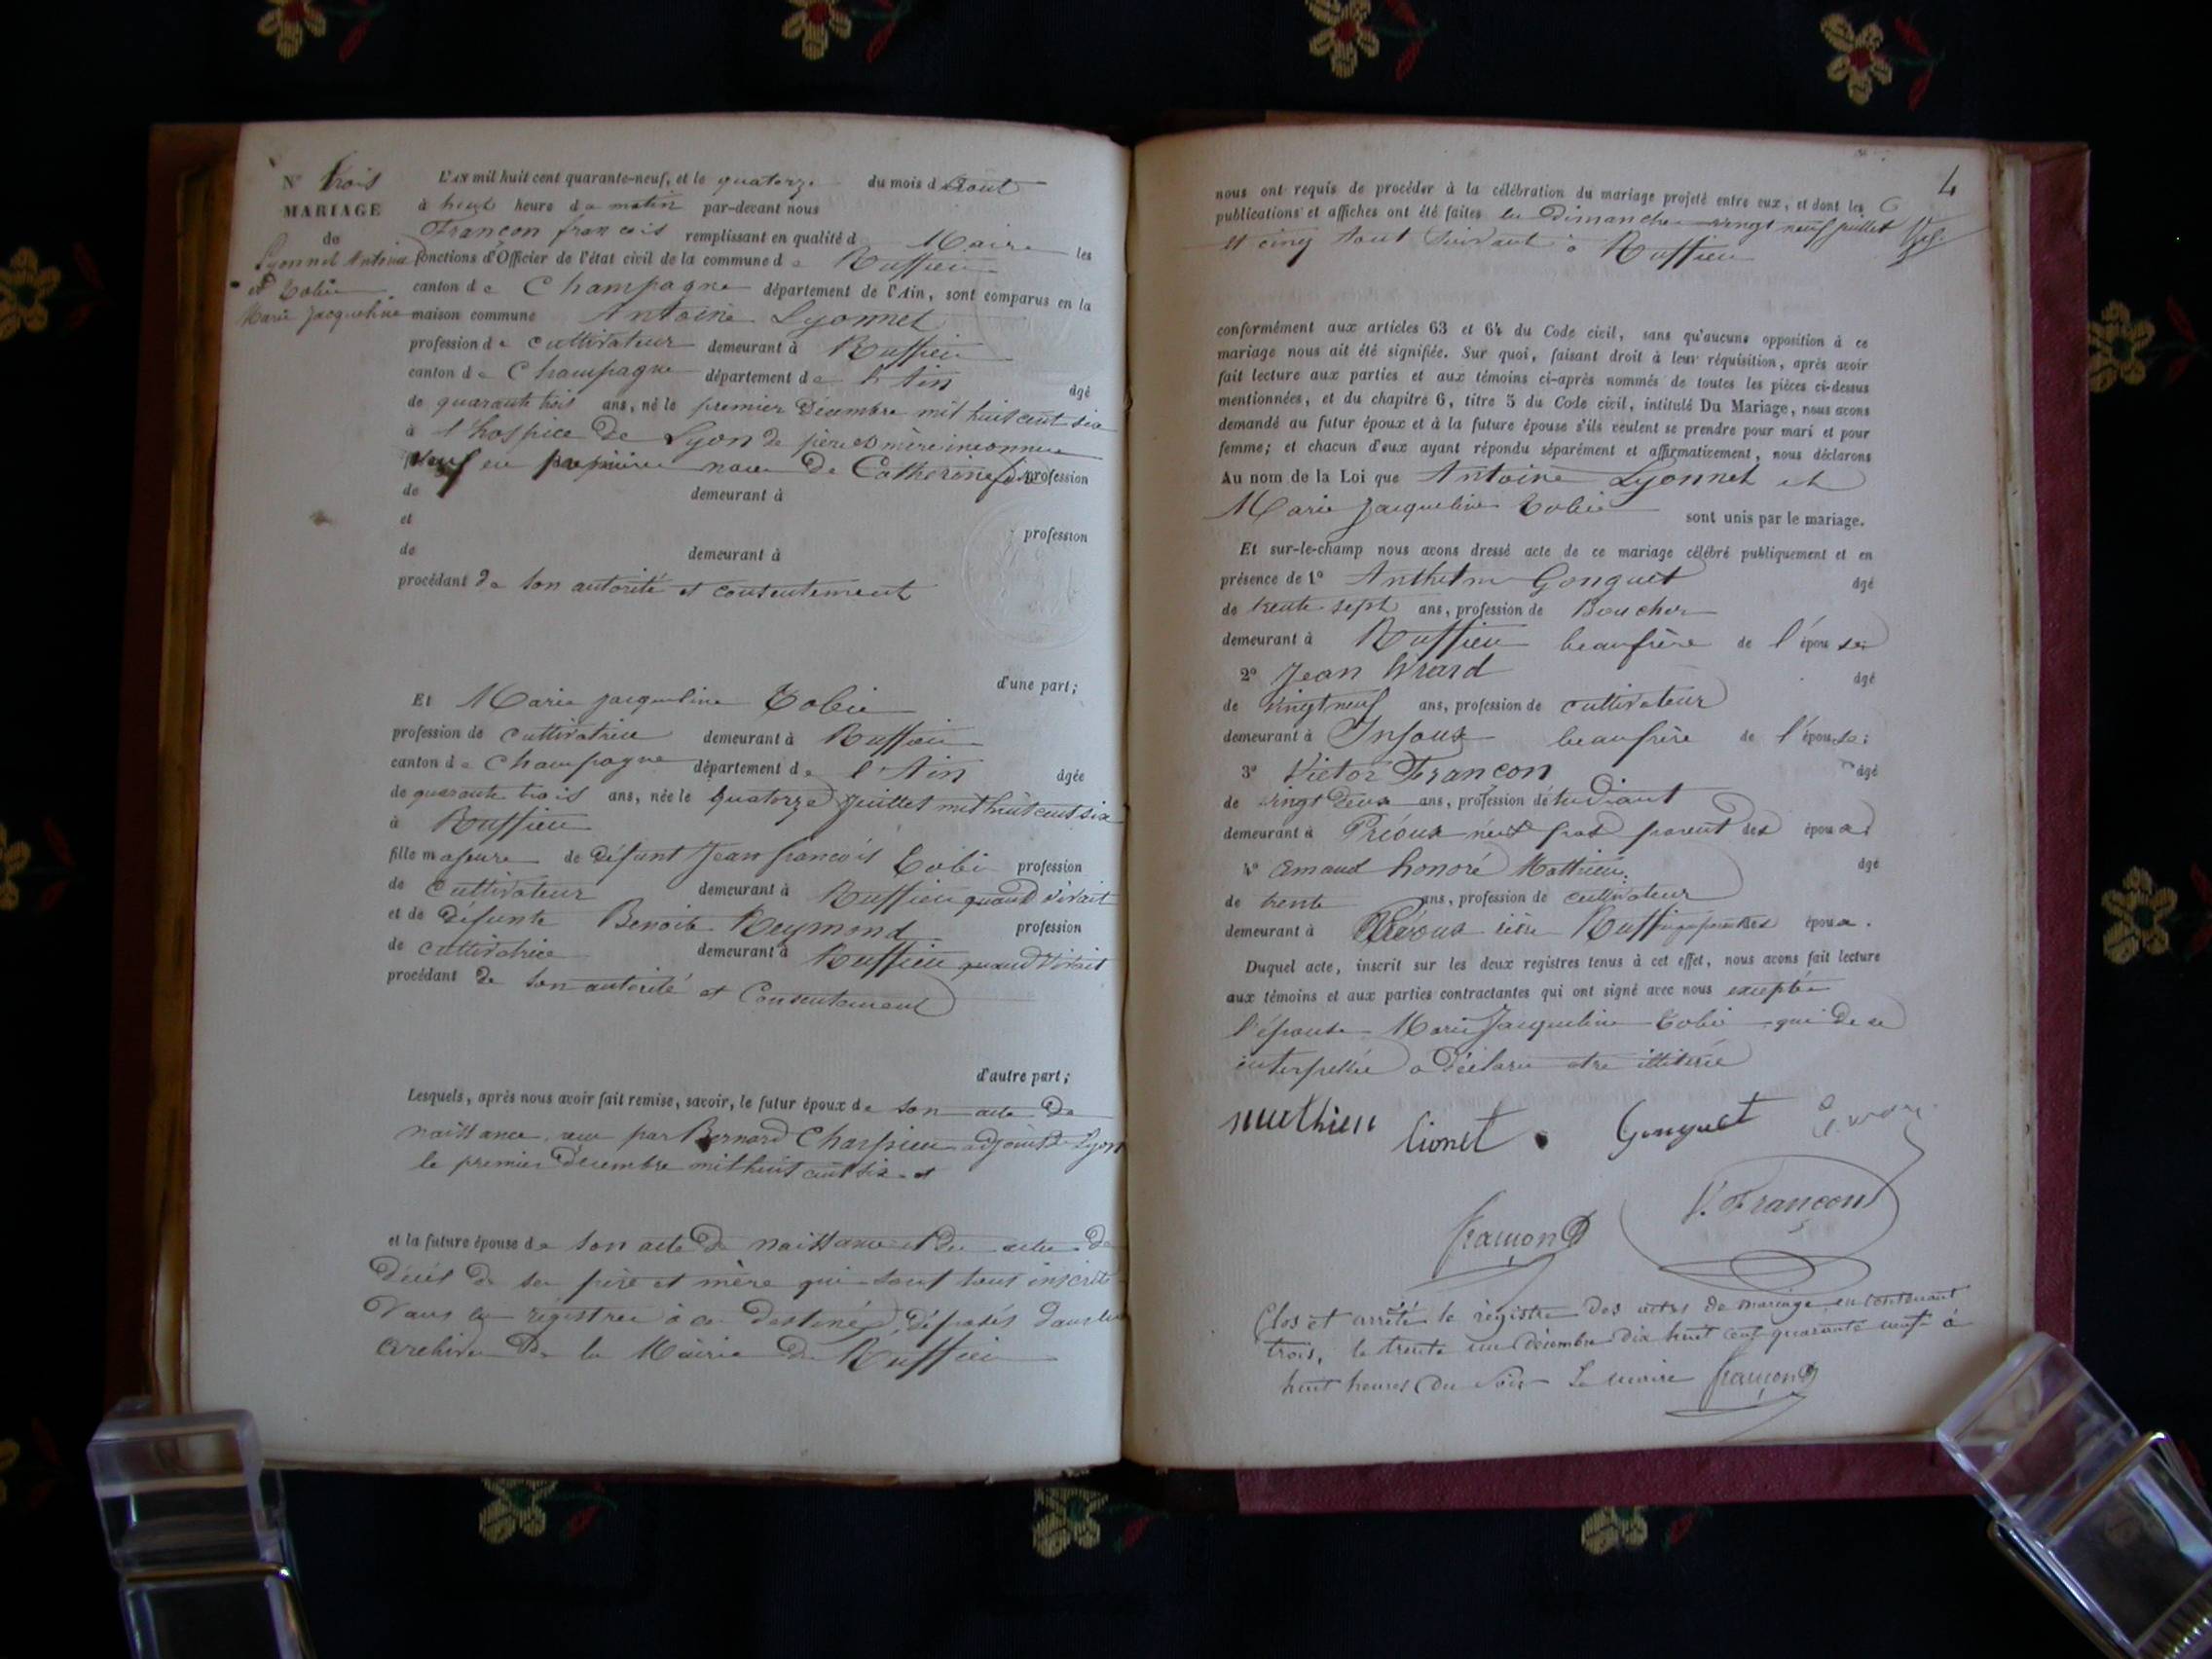 N° trois
MARIAGE
de
Lyonnet Antoine
et Tobie
Marie Jacqueline
L'AN mil huit cent quarante-neuf, et le quatorze du mois d'Aout
à huit heure du matin par-devant nous
Françon françois remplissant en qualité de Maire les
fonctions d'Officier de l'état civil de la commune de Ruffieu
canton de Champagne département de l'Ain, sont comparus en la
maison commune Antoine Lyonnet
profession de cultivateur demeurant à Ruffieu
canton de Champagne département de l'Ain âgé
de quarante trois ans, né le premier Décembre mil huit cent six
à l'hospice de Lyon de père et mère inconnus
veuf en première noce de Catherine profession
de demeurant à
et profession
de demeurant à
procédant de son autorité et consentement
d'une part;
Et Marie jacqueline Tobie
profession de cultivatrice demeurant à Ruffieu
canton de Champagne département de l'Ain âgée
de quarante trois ans, née le quatorze Juillet mil huit cent six
à Ruffieu
fille majeure de défunt Jean françois Tobie profession
de cultivateur demeurant à Ruffieu quand vivait
et de défunte Benoite Reymond profession
de cultivatrice demeurant à Ruffieu quand vivait
procédant de son autorité et Consentement
d'autre part;
Lesquels, après nous avoir fait remise, savoir, le futur époux de son acte de
naissance, reçu par Bernard Charpieu adjoint de Lyon
le premier décembre mil huit cent six et
et la future épouse de son acte de naissance et des actes de
décès de ses père et mère qui sont tous inscrits
dans les registres à ce destinés, déposés dans les
archives de la Mairie de Ruffieu
4
nous ont requis de procéder à la célébration du mariage projeté entre eux, et dont les
publications et affiches ont été faites les Dimanches vingt neuf juillet
et cinq Aout suivant à Ruffieu
conformément aux articles 63 et 64 du Code civil, sans qu'aucune opposition à ce
mariage nous ait été signifiée. Sur quoi, faisant droit à leur réquisition, après avoir
fait lecture aux parties et aux témoins ci-après nommés de toutes les pièces ci-dessus
mentionnées, et du chapitre 6, titre 5 du Code civil, intitulé Du Mariage, nous avons
demandé au futur époux et à la future épouse s'ils veulent se prendre pour mari et pour
femme; et chacun d'eux ayant répondu séparément et affirmativement, nous déclarons
Au nom de la Loi que Antoine Lyonnet et
Marie Jacqueline Tobie sont unis par le mariage.
Et sur-le-champ nous avons dressé acte de ce mariage célébré publiquement et en
présence de 1° Anthelme Gonguet âgé
de trente sept ans, profession de Boucher
demeurant à Ruffieu beaufrère de l'épouse;
2° Jean âgé
de vingt neuf ans, profession de cultivateur
demeurant à beaufrère de l'épouse;
3° Victor Françon âgé
de vingt deux ans, profession d'étudiant
demeurant à n'est pas parent des époux;
4° Amand honoré Mathieu âgé
de trente ans, profession de cultivateur
demeurant à époux.
Duquel acte, inscrit sur les deux registres tenus à cet effet, nous avons fait lecture
aux témoins et aux parties contractantes qui ont signé avec nous excepté
l'épouse Marie Jacqueline Tobie qui de ce
interpellée a déclaré etre illiterée
mathieu lionet Gonguet
françon V. Françon
Clos et arrêté le registre des actes de mariage, en contenant
trois, le trente un décembre dix huit cent quarante neuf à
huit heures du soir Le maire françon